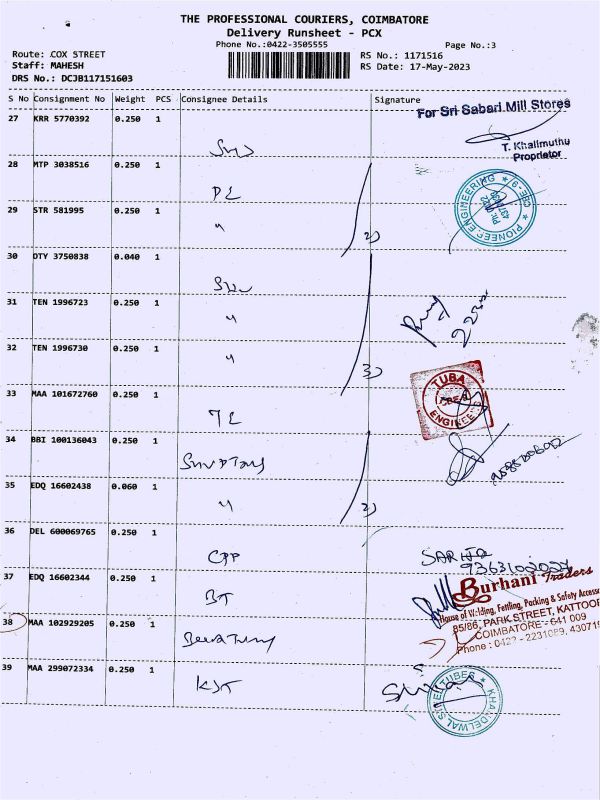 THE PROFESSIONAL COURIERS, COIMBATORE
Delivery Runsheet - PCX
Phone No.:0422-3505555
Page No.:3
Route: COX STREET
Staff: MAHESH
DRS No.: DCJB117151603
RS No.: 1171516
RS Date: 17-May-2023
S No Consignment No Weight PCS Consignee Details Signature
For Sri Sabari Mill Stores
T. Khalimuthu
Proprietor
27 KRR 5770392 0.250 1
28 MTP 3038516 0.250 1
PE
PIONEER ENGINEERING ★ CBE-9 ★
29 STR 581995 0.250 1
"
2)
30 DTY 3750838 0.040 1
31 TEN 1996723 0.250 1
"
32 TEN 1996730 0.250 1
"
3)
TUBA
CBE-9
ENGINEERS
33 MAA 101672760 0.250 1
TE
34 BBI 100136043 0.250 1
35 EDQ 16602438 0.060 1
"
2)
36 DEL 600069765 0.250 1
CPP
37 EDQ 16602344 0.250 1
BT
Burhani Traders
House of Welding, Fettling, Packing & Safety Accesso
85/86, PARK STREET, KATTOOR
COIMBATORE - 641 009
Phone : 0422 - 2231089, 430719
38 MAA 102929205 0.250 1
39 MAA 299072334 0.250 1
KJT
KHANDELWAL STEEL TUBES